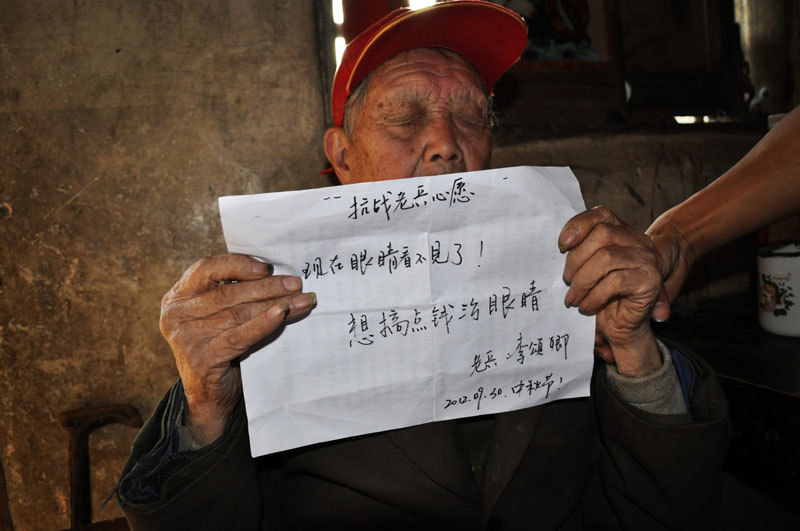 抗战老兵心愿
现在眼睛看不见了！
想搞点钱治眼睛
老兵：李颂卿
2012.09.30.中秋节！